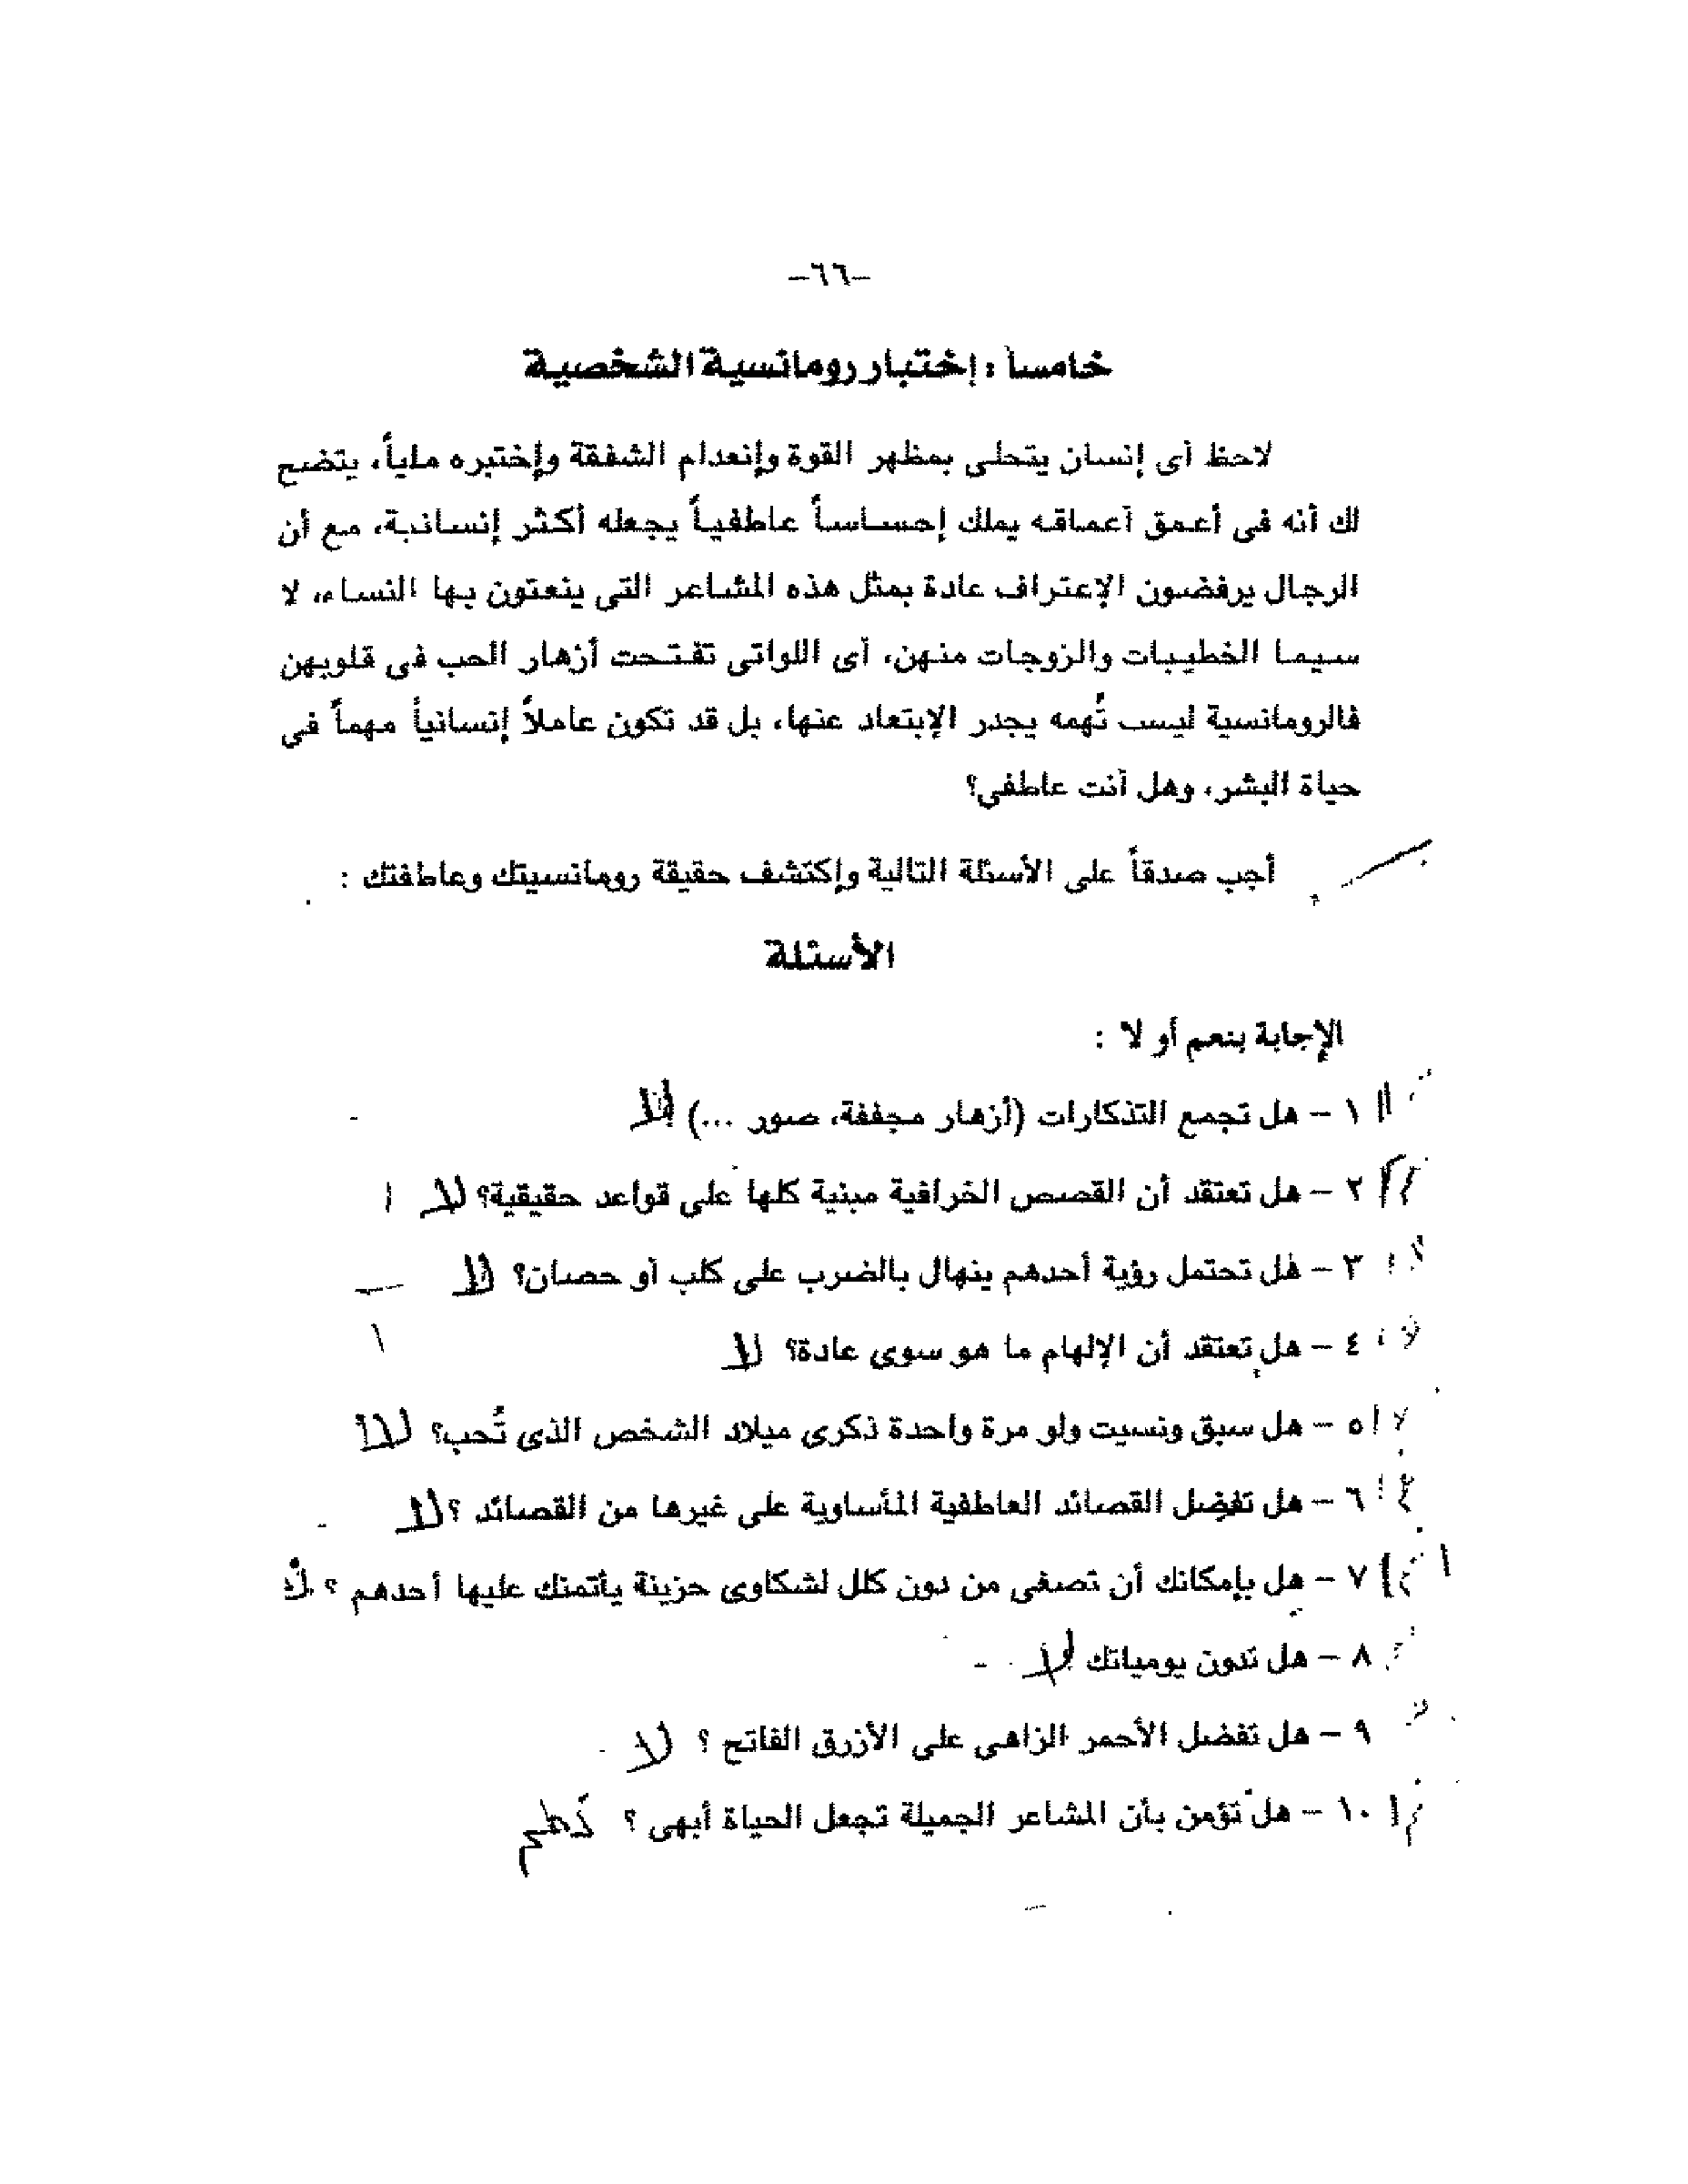 -٦٦-
خامساً : إختبار رومانسية الشخصية
لاحظ أى إنسان يتحلى بمظهر القوة وإنعدام الشفقة وإختبره ملياً، يتضح
لك أنه فى أعمق أعماقه يملك إحساساً عاطفياً يجعله أكثر إنسانية، مع أن
الرجال يرفضون الإعتراف عادة بمثل هذه المشاعر التى ينعتون بها النساء، لا
سيما الخطيبات والزوجات منهن، أى اللواتى تفتحت أزهار الحب فى قلوبهن
فالرومانسية ليست تُهمه يجدر الإبتعاد عنها، بل قد تكون عاملاً إنسانياً مهماً فى
حياة البشر، وهل أنت عاطفى؟
أجب صدقاً على الأسئلة التالية وإكتشف حقيقة رومانسيتك وعاطفتك :
الأسئلة
الإجابة بنعم أو لا :
١ - هل تجمع التذكارات (أزهار مجففة، صور ...) لا
٢ - هل تعتقد أن القصص الخرافية مبنية كلها على قواعد حقيقية؟ لا
٣ - هل تحتمل رؤية أحدهم ينهال بالضرب على كلب أو حصان؟ لا
٤ - هل تعتقد أن الإلهام ما هو سوى عادة؟ لا
٥ - هل سبق ونسيت ولو مرة واحدة ذكرى ميلاد الشخص الذى تُحب؟ لا
٦ - هل تفضل القصائد العاطفية المأساوية على غيرها من القصائد ؟ لا
٧ - هل بإمكانك أن تصغى من دون كلل لشكاوى حزينة يأتمنك عليها أحدهم ؟
٨ - هل تدون يومياتك لا
٩ - هل تفضل الأحمر الزاهى على الأزرق الفاتح ؟ لا
١٠ - هل تؤمن بأن المشاعر الجميلة تجعل الحياة أبهى ؟ نعم